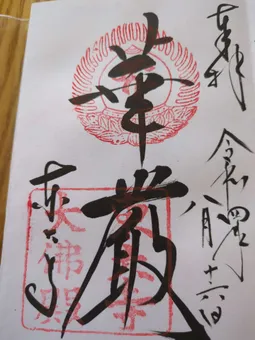 奉拝
令和四年
八月十六日
華
厳
東大寺
東大寺
大佛殿